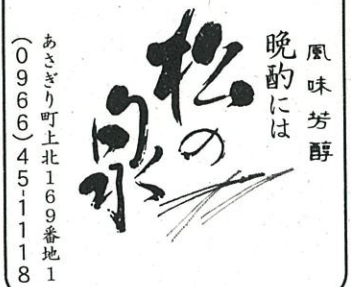 風味芳醇
晩酌には
松の泉
あさぎり町上北169番地1
(0966)45-1118